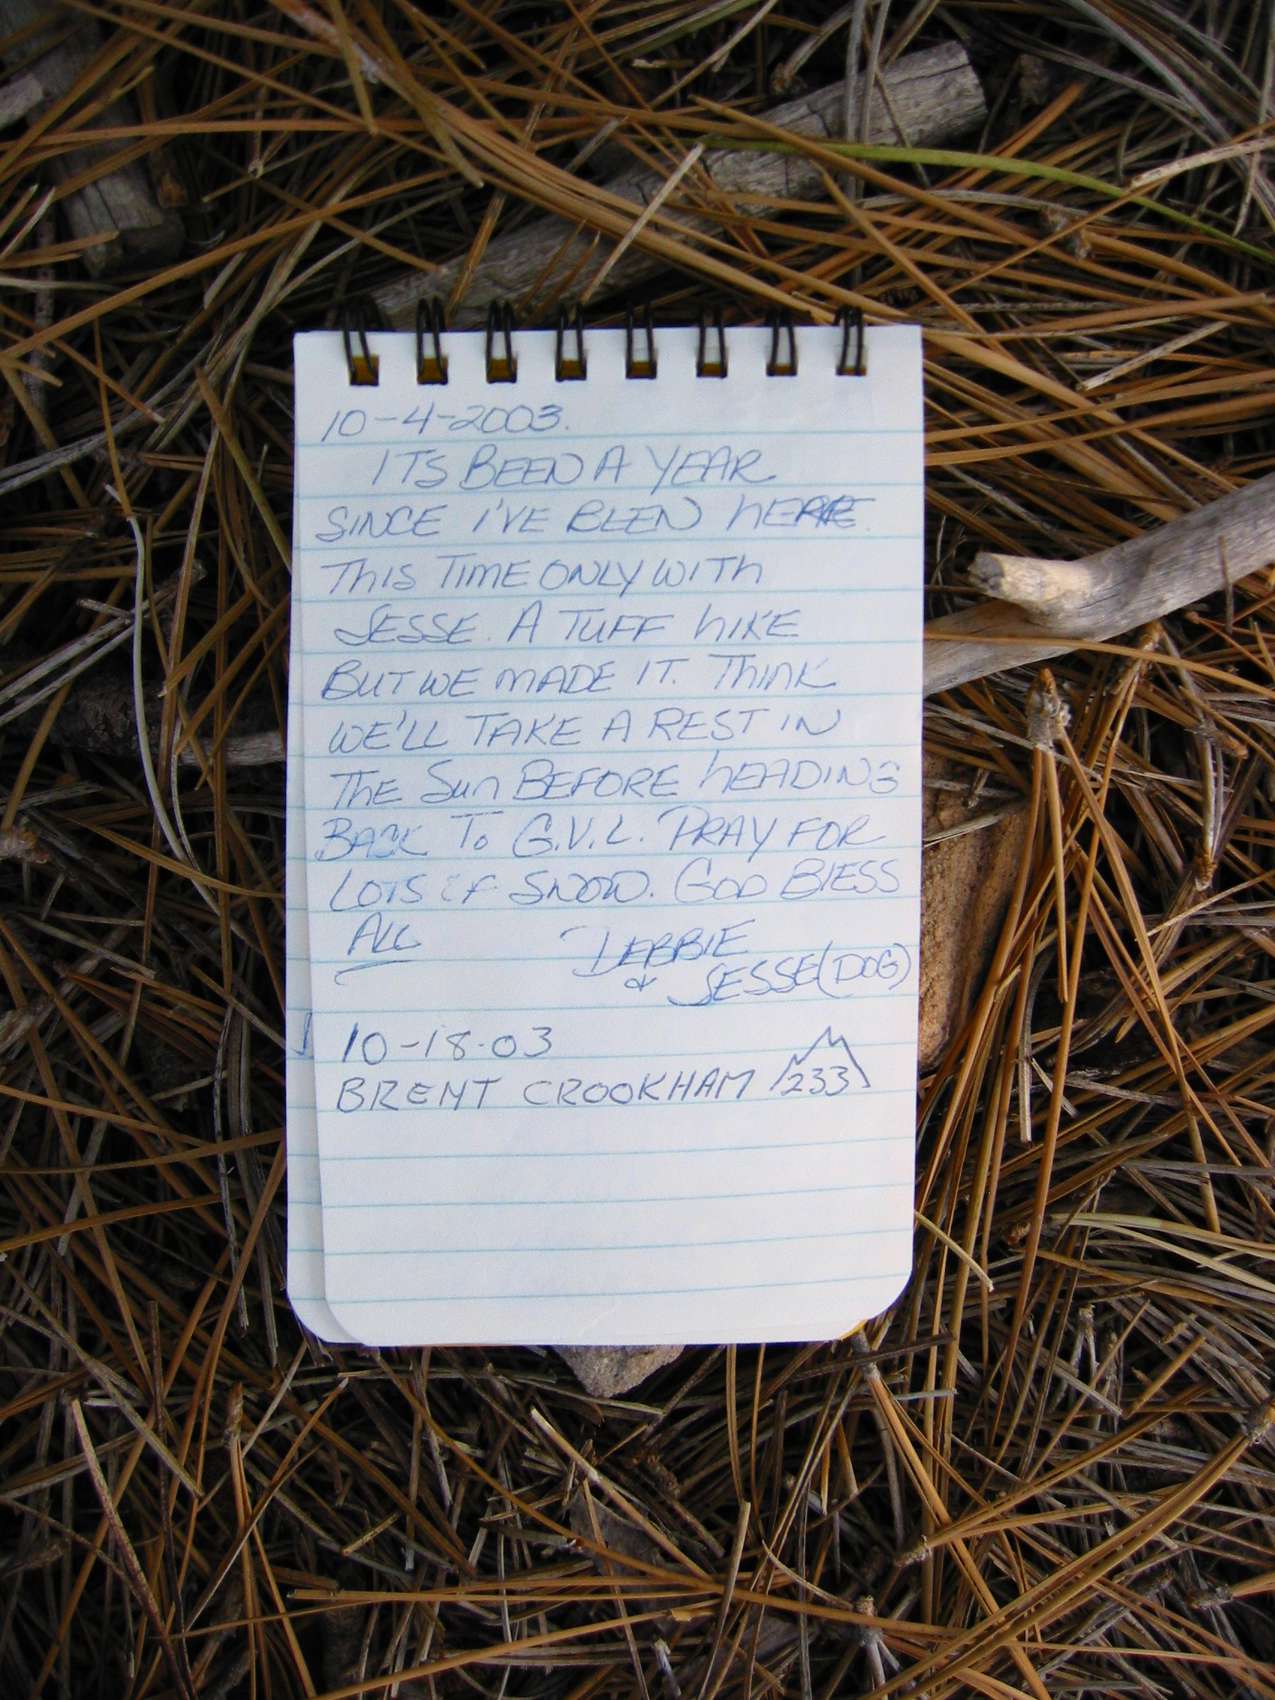 10-4-2003.
ITS BEEN A YEAR
SINCE I'VE BEEN HERE.
THIS TIME ONLY WITH
JESSE. A TUFF HIKE
BUT WE MADE IT. THINK
WE'LL TAKE A REST IN
THE SUN BEFORE HEADING
BACK TO G.V.L. PRAY FOR
LOTS OF SNOW. GOD BLESS
ALL
DEBBIE
& JESSE (DOG)
10-18-03
BRENT CROOKHAM 233